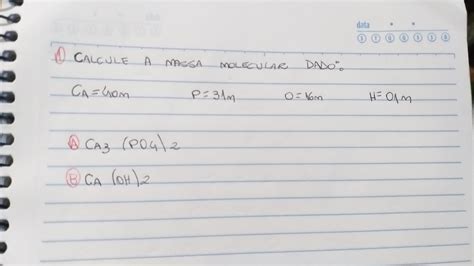 data
1) CALCULE A MASSA MOLECULAR DADO:
CA=40m P=31m O=16m H=01m
A CA3 (PO4)2
B CA (OH)2